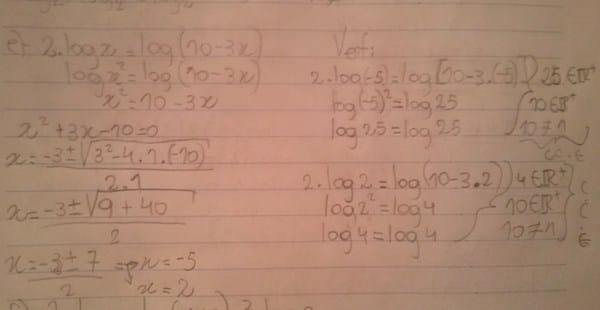 e) 2.logx = log(10-3x)
logx² = log(10-3x)
x² = 10-3x
x²+3x-10=0
x = -3±√3²-4.1.(-10)
2.1
x = -3±√9+40
2
x = -3±7 => x = -5
2
x = 2
Verf:
2.log(-5) = log[10-3.(-5)] 25 ∈ ℝ⁺
log(-5)² = log25 10 ∈ ℝ⁺
log25 = log25 10≠1
C.E
2.log2 = log(10-3.2) 4 ∈ ℝ⁺
log2² = log4 10 ∈ ℝ⁺
log4 = log4 10≠1